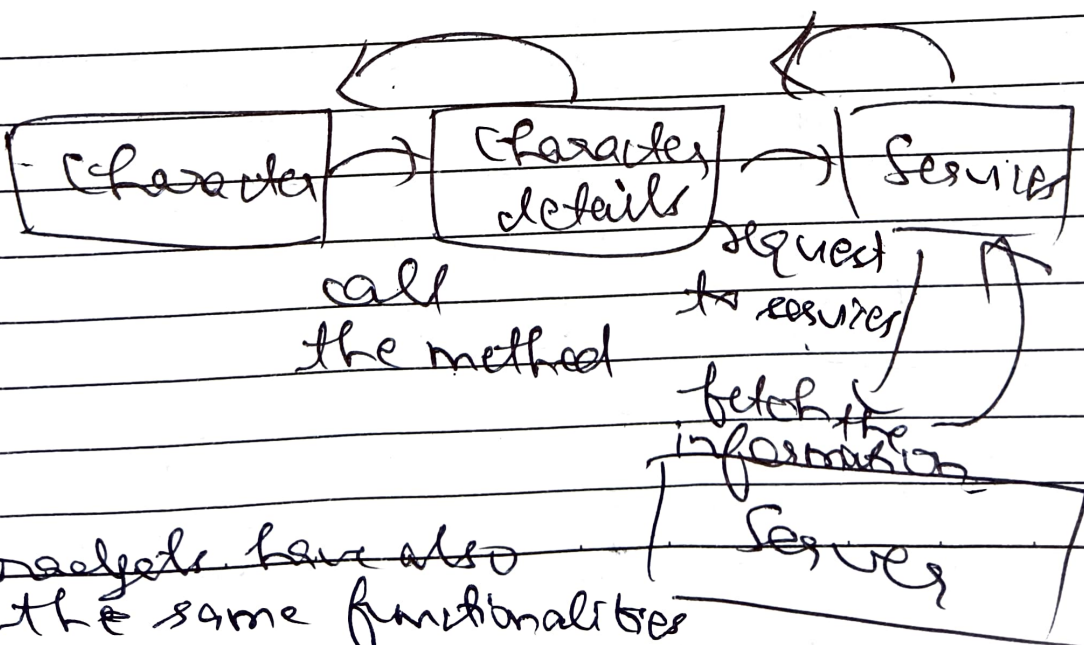 Character
Character
details
Services
call
the method
request
to services
fetch the
information
Server
have also
the same functionalities